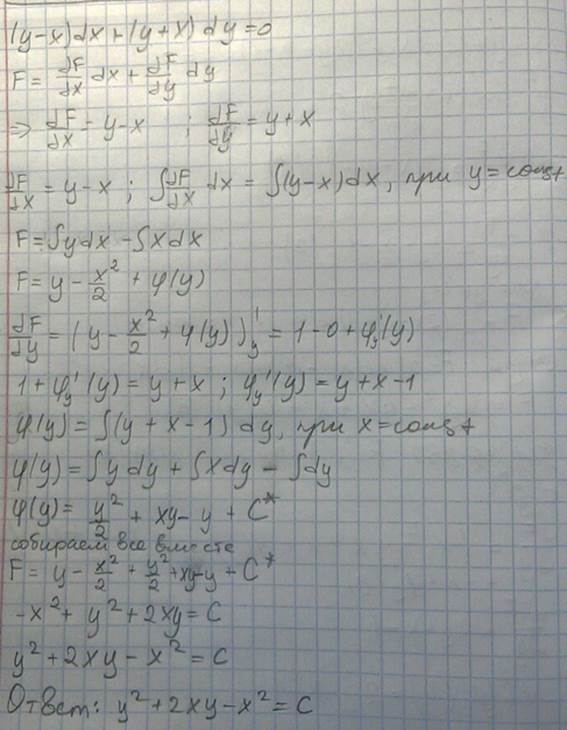 (y-x)dx+(y+x)dy=0
F = dF/dx dx + dF/dy dy
=> dF/dx = y-x ; dF/dy = y+x
dF/dx = y-x ; ∫dF/dx dx = ∫(y-x)dx, при y=const
F = ∫ydx - ∫xdx
F = y - x²/2 + φ(y)
dF/dy = (y - x²/2 + φ(y))'y = 1-0+φ'y(y)
1+φy'(y) = y+x ; φy'(y) = y+x-1
φ(y) = ∫(y+x-1)dy, при x=const
φ(y) = ∫ydy + ∫xdy - ∫dy
φ(y) = y²/2 + xy - y + C*
собираем все вместе
F = y - x²/2 + y²/2 + xy-y + C*
-x² + y² + 2xy = C
y² + 2xy - x² = C
Ответ: y² + 2xy - x² = C